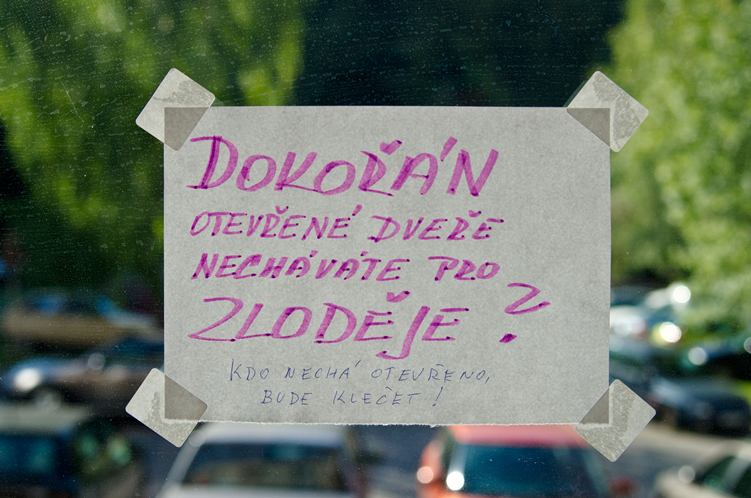 DOKOŘÁN
OTEVŘENÉ DVEŘE
NECHÁVÁTE PRO
ZLODĚJE?
KDO NECHÁ OTEVŘENO,
BUDE KLEČET!